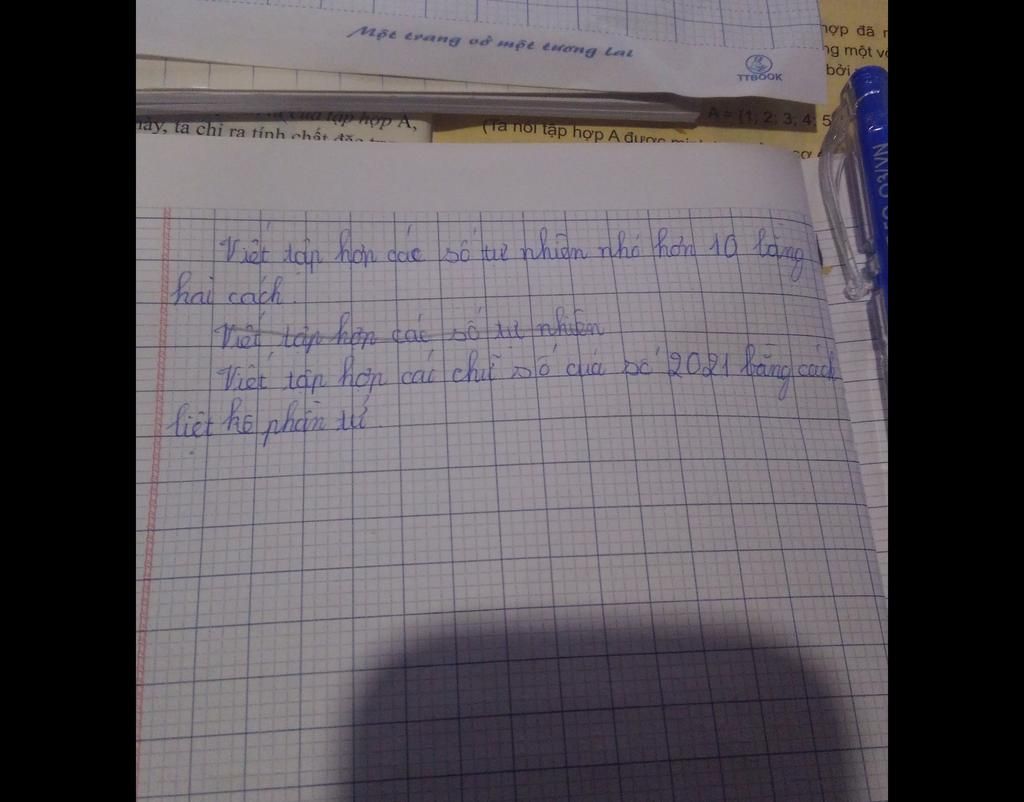 Một trang vở một tương lai
TTBOOK
hợp đã
một
bởi
của tập hợp A,
này, ta chỉ ra tính chất
(Ta nói tập hợp A được
A = {1; 2; 3; 4; 5
Viết tập hợp các số tự nhiên nhỏ hơn 10 bằng
hai cách.
Viết tập hợp các số tự nhiên
Viết tập hợp các chữ số của số 2021 bằng cách
liệt kê phần tử